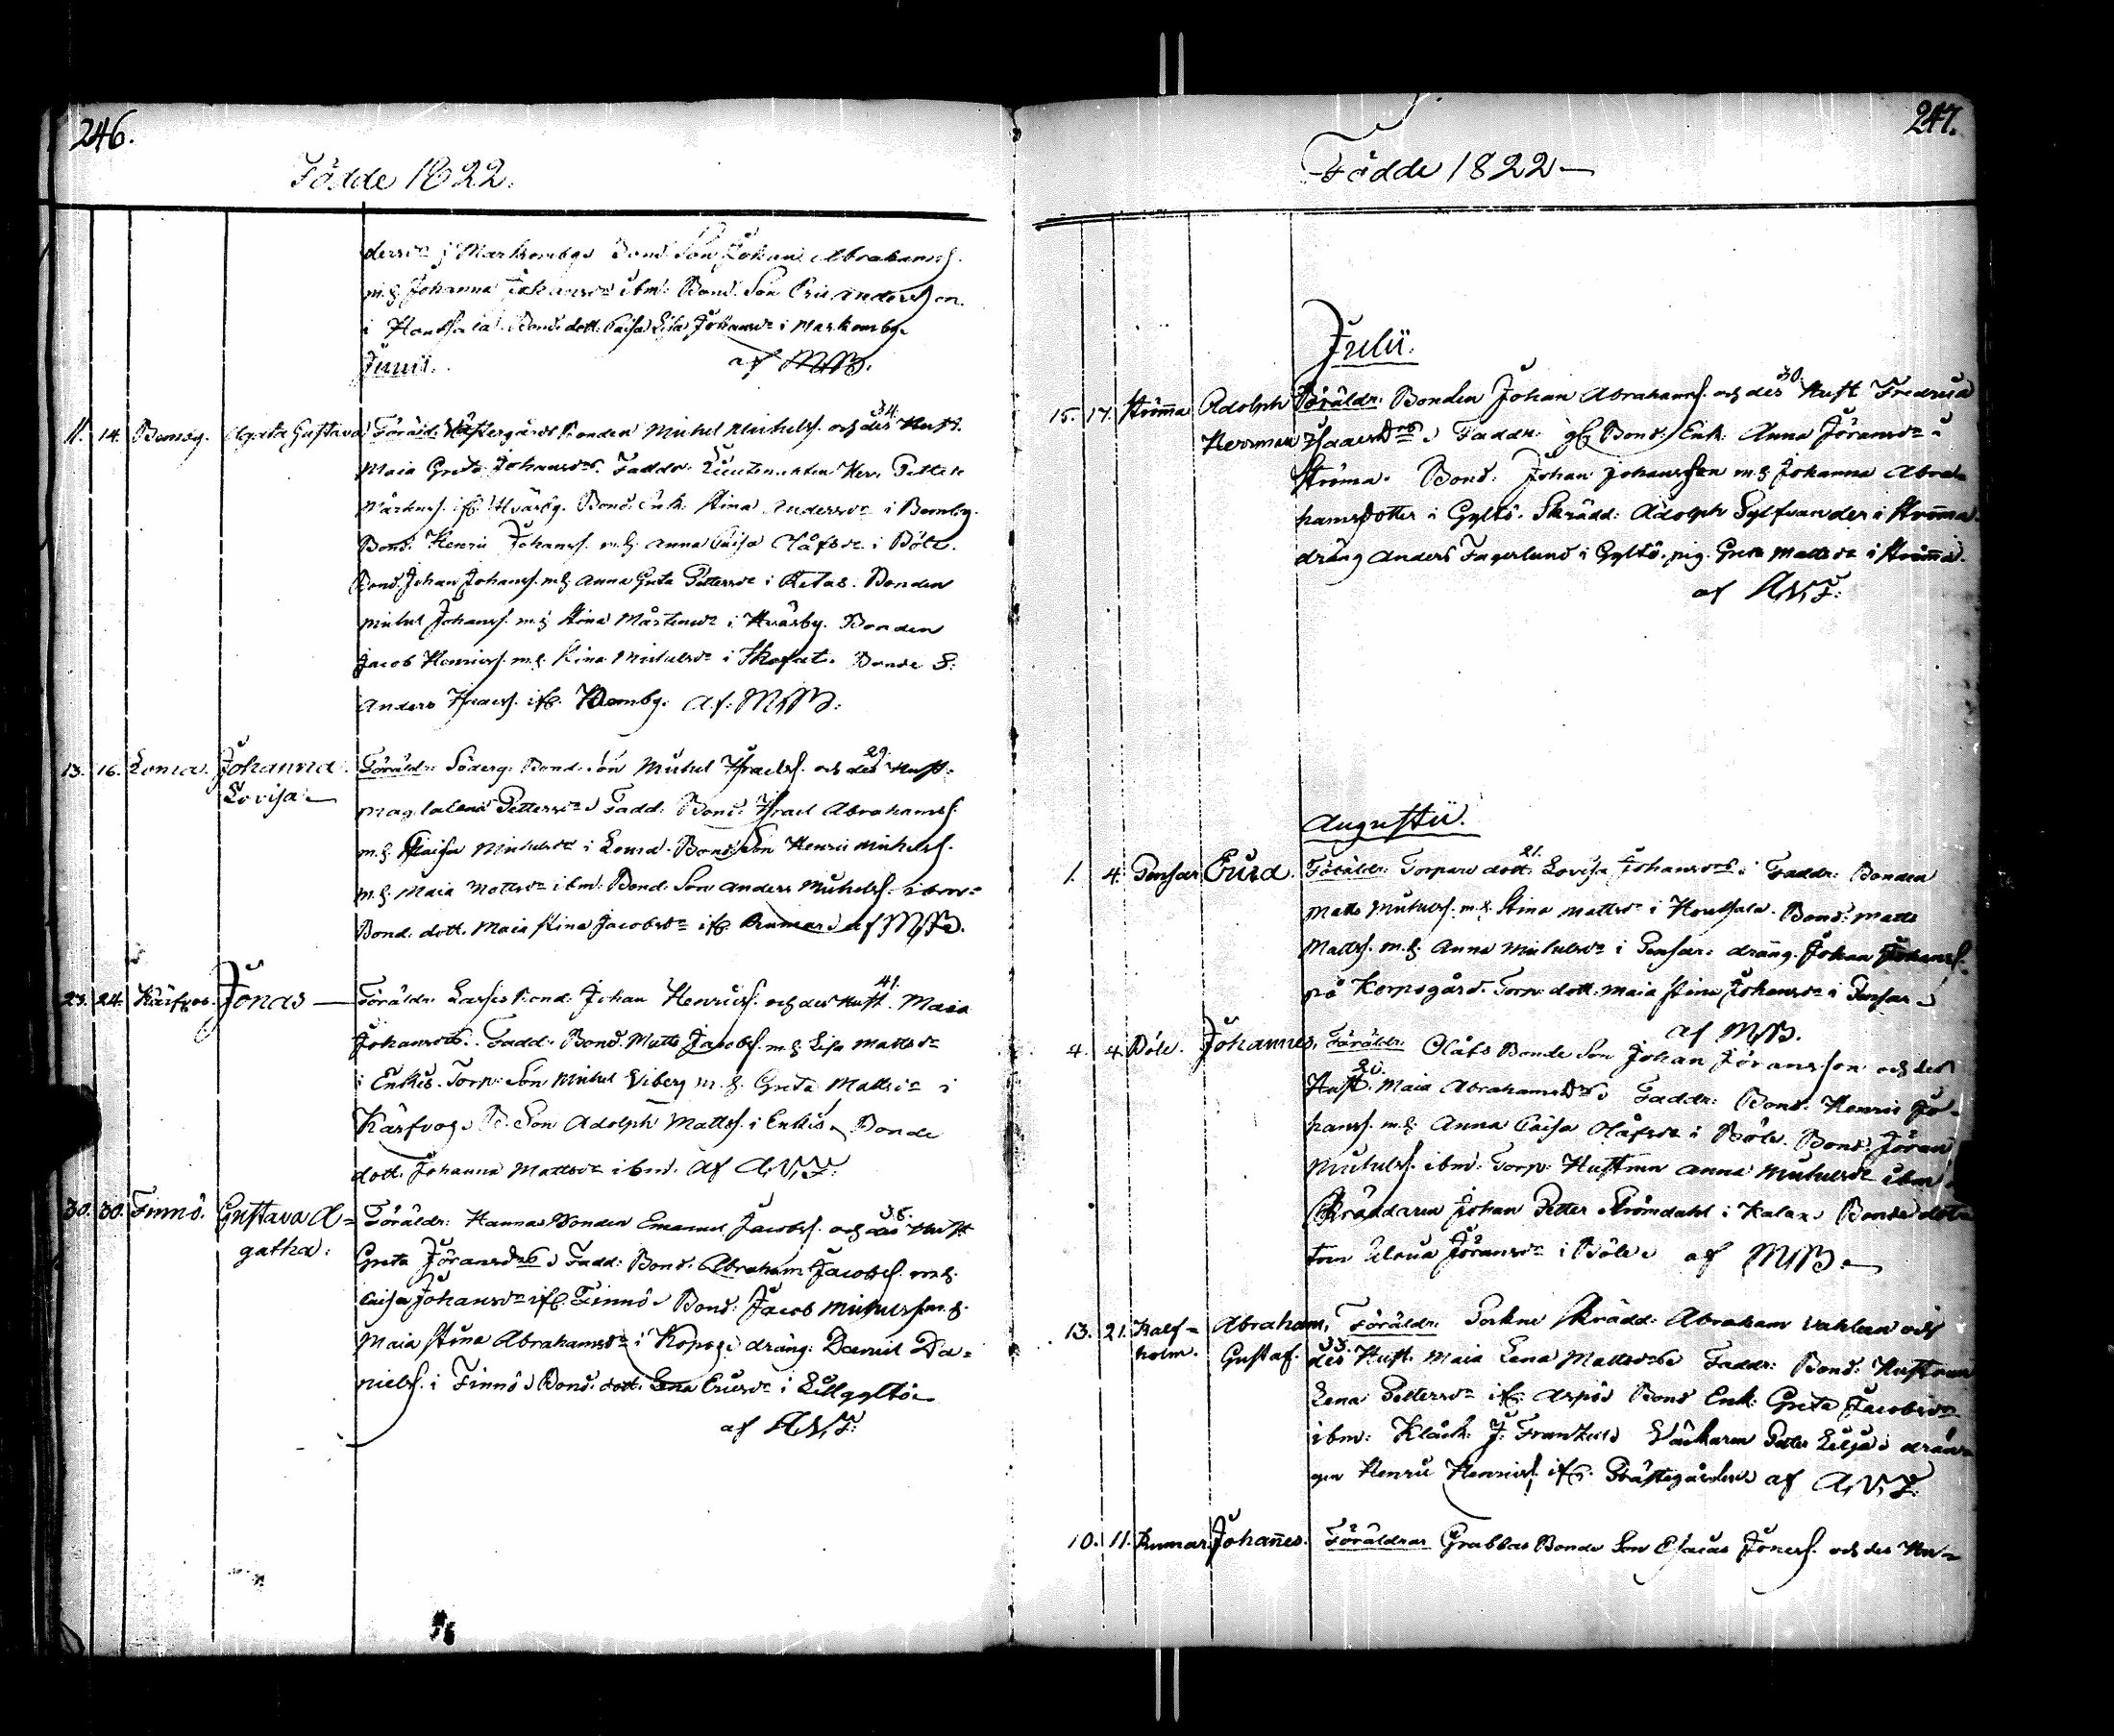 246.
Födde 1822.
dersdr i Markomby. Bond. Son Johan Abrahamss.
m.h. Johanna Johansdr ibm. Bond. Son Eric Andersson
i Houtsala. Bond. dott. Caisa Lisa Johansdr i Markomby.
Junii.
af MB.
11. 14. Bemby. Agata Gustava Föräld: Västergårds Bonden Michel Michelss. och des 34. Hust.
Maia Greta Johansdr. Faddr: Lieutenanten Herr Petter
i Hväsby. Bond. Enk. Stina Andersdr i Bemby.
Bond. Henric Johanss. m.h. Anna Caisa Olåfsdr i Böle.
Bond. Johan Johanss. m.h. Anna Greta Pettersdr i Retas. Bonden
Michel Johanss. m.h. Stina Mårtensdr i Hväsby. Bonden
Jacob Henricss. m.h. Stina Michelsdr i Skogat. Bonde S:
Anders Isracss. ifr. Bemby. af: MB:
13. 16. Loma. Johanna Lovisa Föräldr: Söderg. Bond. Son Michel Israelss. och des 29. Hust.
Magdalena Pettersdr. Fadd: Bond: Israel Abrahamss.
m.h. Caisa Michelsdr i Loma. Bond. Son Henric Michelss.
m.h. Maia Mattsdr ibm. Bond. Son Anders Michelss. ibm.
Bond. dott. Maia Stina Jacobsdr ifr. Rumar. af MB.
23. 24. Kärfvog. Jonas Föräldr: Larses Bond: Johan Henricss. och des Hust. 41. Maia
Johansdr. Fadd: Bond. Matts Jacobss. m.h. Lisa Mattsdr
i Enkis. Torp. Son Michel Viberg m.h. Greta Mattsdr i
Kärfvog. B. Son Adolph Mattss. i Enkis. Bonde
dott. Johanna Mattsdr ibm. af A.V.F.
30. 30. Finnö. Gustava A=
gatha: Föräldr: Hannas Bonden Emanuel Jacobss. och des 38. Hust
Greta Jöransdr. Fadd: Bond. Abraham Jacobss. m.h.
Caisa Johansdr ifr. Finnö. Bond: Jacob Michelss. m.h.
Maia Stina Abrahamsdr i Kopog. dräng: Daniel Da=
nielss. i Finnö. Bond. dott. Lena Ericsdr i Lillgyltö.
af A.V.F.
247.
Födde 1822
Julii.
15. 17. Ströma Adolph Herrman Föräldr: Bonden Johan Abrahamss. och des 30. Hust Fredrica
Isacsdr. Faddr: Bond: Enk. Anna Jöransdr i
Ströma. Bond: Johan Johansson m.h. Johanna Abra=
hamsdotter i Gyltö. Skrädd: Adolph Sylfvander i Ströma.
dräng Anders Fagerlund i Gyltö. pig. Greta Mattsdr i Ströma.
af A.V.F.
Augustii.
1. 4. Pensar Eurd. Föräldr: Torpare dott. 21. Lovisa Johansdr. Faddr: Bonden
Matts Michelss. m.h. Stina Mattsdr i Houtsala. Bond: Matts
Mattss. m.h. Anna Michelsdr i Pensar: dräng. Johan Johanss.
på Korpogård. Torp. dott. Maia Stina Johansdr i Pensar.
af MB.
4. 4. Böle. Johannes. Föräldr: Olåfs Bonde Son Johan Jöransson och des
Hust. Maia Abrahamsdr. Faddr: Bond. Henric Jo=
hanss. m.h. Anna Caisa Olåfsdr i Böle. Bond. Jöran
Michelss. ibm. Torp. Hustrun Anna Michelsdr ibm.
Skräddaren Johan Petter Strömdahl i Kalax. Bonde dot=
tren Ulrica Jöransdr i Böle. af MB.
13. 21. Kalf=
holm. Abraham, Gustaf. Föräldr: Sockne Skrädd: Abraham Vahlen och
des 33. Hust. Maia Lena Mattsdr. Faddr: Bond: Hustrun
Lena Pettersdr ifr. Aspö. Bond Enk: Greta Jacobsdr
ibm: Klåck. J. Frantzén Petter Lilja. drän=
gen Henric Henricss. ifr. Prästegården. af A.V.F.
10. 11. Rumar. Johannes. Föräldrar Grabbas Bonde Son Esaias Jönss. och des Hu=